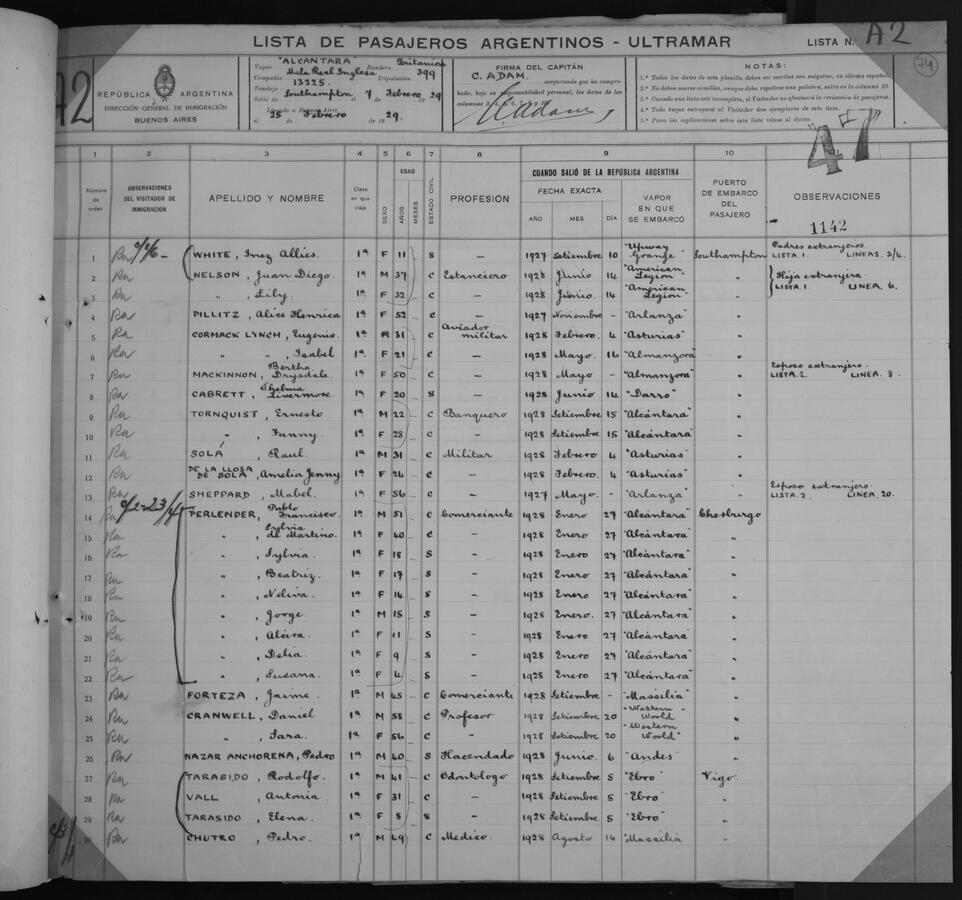 LISTA DE PASAJEROS ARGENTINOS - ULTRAMAR
LISTA N. A2
74
A2
REPÚBLICA ARGENTINA
DIRECCIÓN GENERAL DE INMIGRACIÓN
BUENOS AIRES
Vapor "ALCANTARA" Bandera Britanica
Compañía Mala Real Inglesa Tripulación 399
Tonelaje 13225.
Salió de Southampton el 7 Febrero 1929
Llegado a Buenos Aires
el 25 Febrero de 1929.
FIRMA DEL CAPITÁN
C. ADAM. asegurando que ha comprobado, bajo su responsabilidad personal, los datos de las columnas 3, 4, 5, 6, 7, 8, 9 y 10
NOTAS:
1.ª Todos los datos de esta planilla deben ser escritos con máquina, en idioma español.
2.ª No deben usarse comillas, aunque deba repetirse una palabra, salvo en la columna 19
3.ª Cuando una lista esté incompleta, el Visitador no efectuará la revisación de pasajeros.
4.ª Todo buque entregará al Visitador dos ejemplares de esta lista.
5.ª Para las explicaciones sobre esta lista véase al dorso.
47
1 2 3 4 5 6 7 8 9 10
Número de orden
OBSERVACIONES DEL VISITADOR DE INMIGRACION
APELLIDO Y NOMBRE
Clase en que viaja
SEXO
EDAD
AÑOS
MESES
ESTADO CIVIL
PROFESIÓN
CUANDO SALIÓ DE LA REPÚBLICA ARGENTINA
FECHA EXACTA
AÑO MES DÍA
VAPOR EN QUE SE EMBARCÓ
PUERTO DE EMBARCO DEL PASAJERO
OBSERVACIONES
1142
1 WHITE, Inez Allies. 1ª F 11 S — 1927 Setiembre 10 "Upway Grange" Southampton Padres extranjeros LISTA 1. LINEAS. 3/4.
2 NELSON, Juan Diego. 1ª M 37 C Estanciero 1928 Junio 14 "American Legion" " Hija extranjera LISTA 1. LINEA 6.
3 " , Lily. 1ª F 32 C — 1928 Junio. 14 "American Legion" "
4 PILLITZ, Alice Henrica 1ª F 52 C — 1927 Noviembre - "Arlanza" "
5 CORMACK LYNCH, Eugenio. 1ª M 31 C Aviador militar 1928 Febrero 4 "Asturias" "
6 " " , Isabel 1ª F 21 C — 1928 Mayo. 16 "Almanzora" "
7 MACKINNON, Bertha Drysdale. 1ª F 50 C — 1928 Mayo - "Almanzora" " Esposo extranjero. LISTA 2. LINEA 8.
8 CABRETT, Thelma Livermore. 1ª F 20 S — 1928 Junio 14 "Darro" "
9 TORNQUIST, Ernesto 1ª M 22 C Banquero 1928 Setiembre 15 "Alcántara" "
10 " , Fanny. 1ª F 28 C — 1928 Setiembre 15 "Alcántara" "
11 SOLÁ , Raul. 1ª M 31 C Militar 1928 Febrero 4 "Asturias" "
12 DE LA LLOSA DE SOLA, Amelia Jenny 1ª F 24 C — 1928 Febrero. 4 "Asturias" "
13 SHEPPARD, Mabel. 1ª F 56 C — 1927 Mayo. - "Arlanza" " Esposo extranjero. LISTA 2. LINEA. 20.
14 PERLENDER, Pablo Francisco. 1ª M 51 C Comerciante 1928 Enero 27 "Alcántara" Cherburgo
15 " , Sylvia de Martino. 1ª F 40 C — 1928 Enero 27 "Alcántara" "
16 " , Sylvia. 1ª F 18 S — 1928 Enero 27 "Alcántara" "
17 " , Beatriz. 1ª F 17 S — 1928 Enero 27 "Alcántara" "
18 " , Neliva. 1ª F 14 S — 1928 Enero 27 "Alcántara" "
19 " , Jorge 1ª M 15 S — 1928 Enero. 27 "Alcántara" "
20 " , Alcira. 1ª F 11 S — 1928 Enero 27 "Alcántara" "
21 " , Delia. 1ª F 9 S — 1928 Enero 27 "Alcántara" "
22 " , Susana. 1ª F 4 S — 1928 Enero 27 "Alcántara" "
23 FORTEZA, Jaime. 1ª M 45 C Comerciante 1928 Setiembre - "Massilia" "
24 CRANWELL, Daniel 1ª M 58 C Profesor 1928 Setiembre 20 "Western World" "
25 " , Sara. 1ª F 56 C — 1928 Setiembre 20 "Western World" "
26 NAZAR ANCHORENA, Pedro 1ª M 40 S Hacendado 1928 Junio. 6 "Andes" "
27 TARASIDO, Rodolfo. 1ª M 41 C Odontologo 1928 Setiembre 5 "Ebro" Vigo.
28 VALL , Antonia. 1ª F 31 C — 1928 Setiembre 5 "Ebro" "
29 TARASIDO, Elena. 1ª F 8 S — 1928 Setiembre 5 "Ebro" "
30 CHUTRO, Pedro. 1ª M 49 C Medico. 1928 Agosto 14 "Massilia "